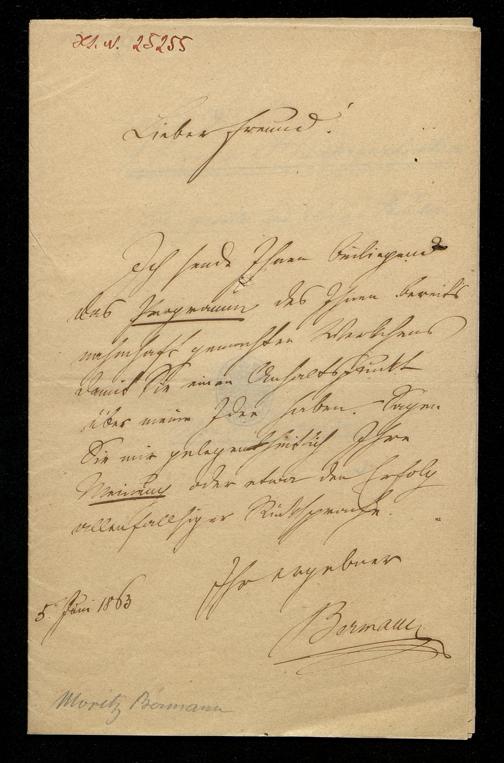 H.I.N. 25255
Lieber Freund!
Ich sende Ihnen beiliegend
das Programm des Ihnen bereits
namhaft gemachten Werkchens
damit Sie einen Anhaltspunkt
über meine Idee haben. Sagen
Sie mir gelegenheitlich Ihre
Meinung oder etwa den Erfolg
allenfallsiger Rücksprache.
Ihr ergebner
5 Juni 1863
Bermann
Moritz Bermann